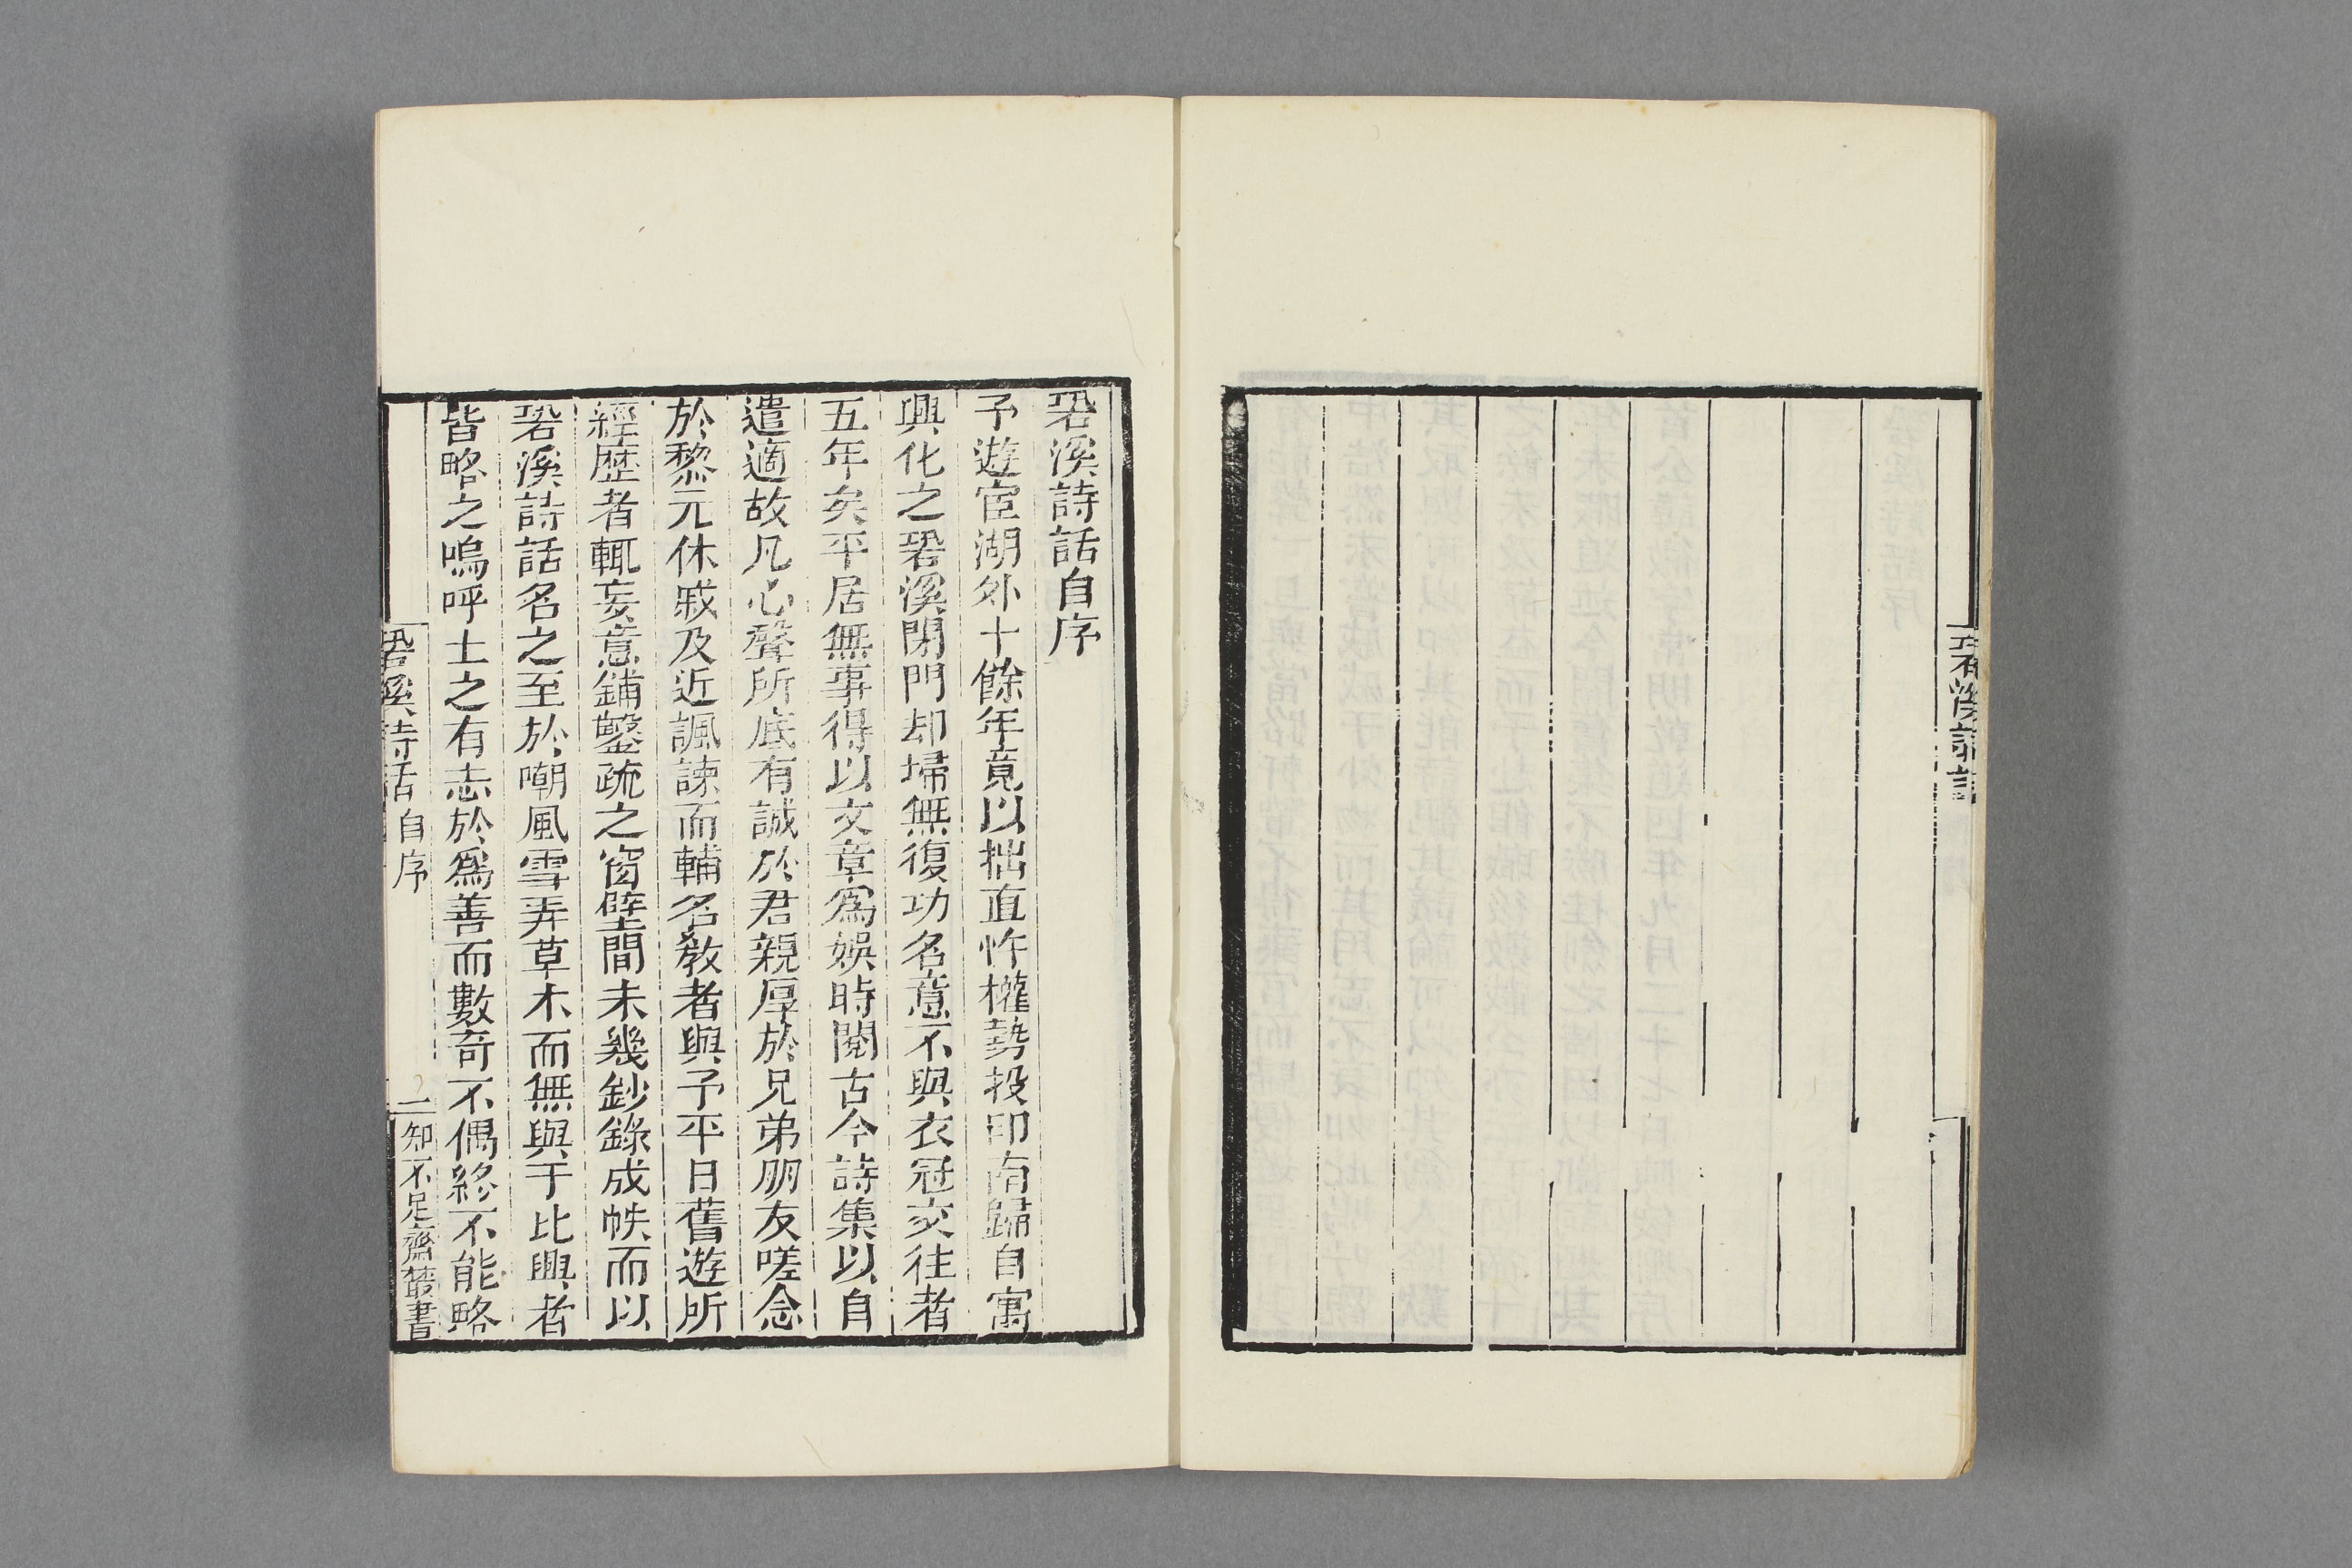 䂬溪詩話
䂬溪詩話自序
予遊宦湖外十餘年竟以拙直忤權勢投印南歸自寓
興化之䂬溪閉門却埽無復功名意不與衣冠交往者
五年矣平居無事得以文章爲娛時閱古今詩集以自
遣適故凡心聲所底有誠於君親厚於兄弟朋友嗟念
於黎元休戚及近諷諫而輔名敎者與予平日舊遊所
經歷者輒妄意鋪鑿疏之窗壁間未幾鈔錄成帙而以
䂬溪詩話名之至於嘲風雪弄草木而無與于比興者
皆略之嗚呼士之有志於爲善而數奇不偶終不能略
䂬溪詩話自序
一
知不足齋叢書